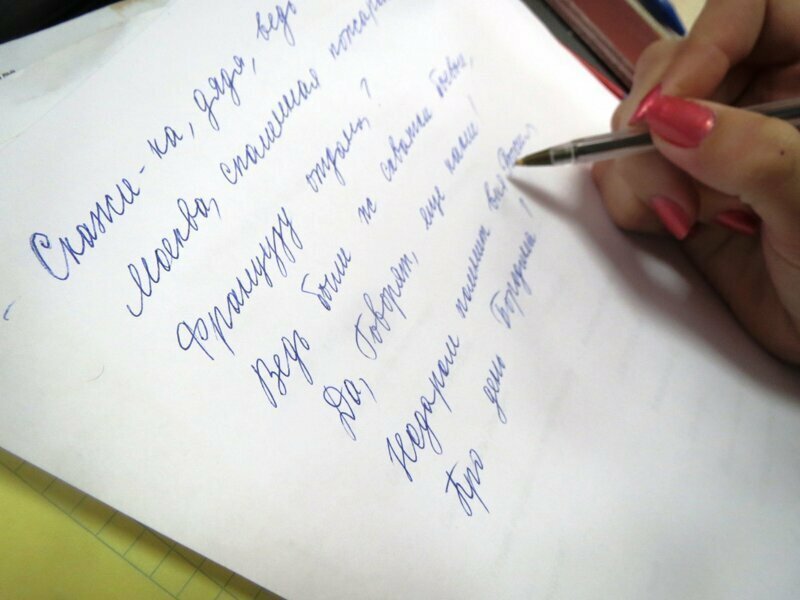 Скажи-ка, дядя, ведь
Москва, спаленная пожаром
Французу отдана?
Ведь были ж схватки боевые,
Да, Говорят, еще какие!
Недаром помнит вся Россия
Про день Бородина!